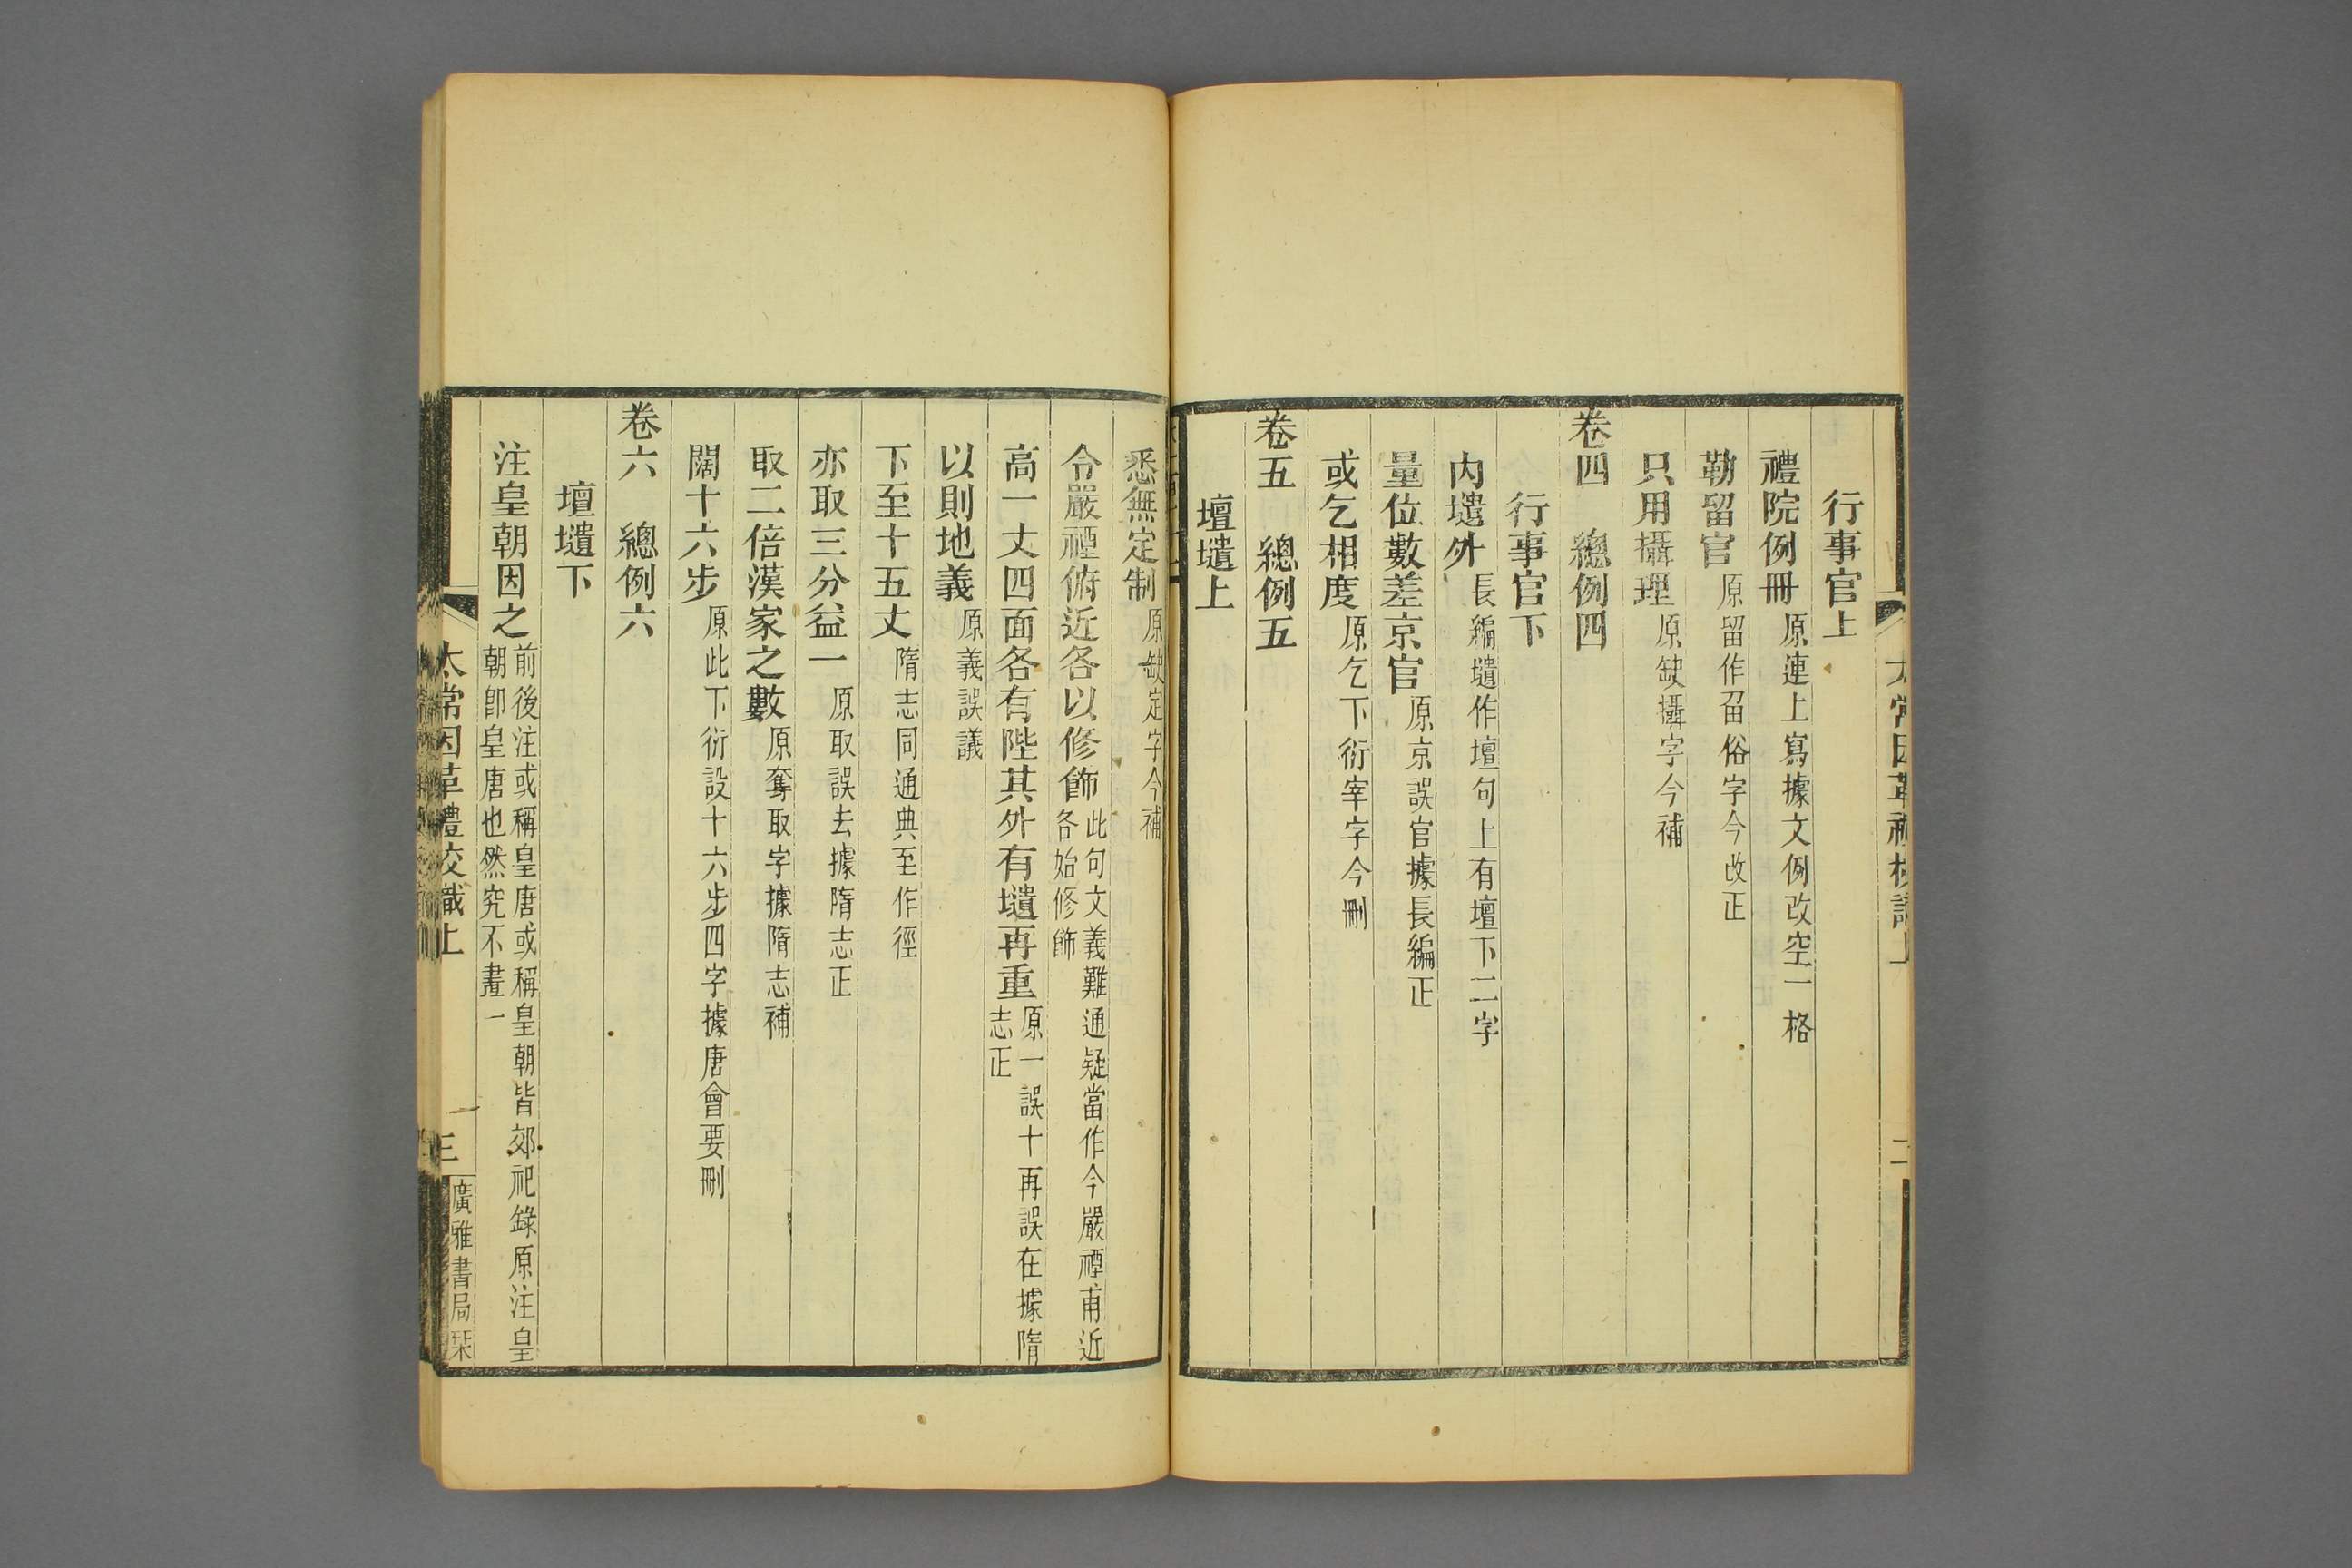 行事官上
禮院例冊原連上寫據文例改空一格
勒留官原留作㽞俗字今改正
只用攝理原缺攝字今補
卷四　總例四
行事官下
内壝外長編壝作壇句上有壇下二字
量位數差京官原京誤官據長編正
或乞相度原乞下衍宰字今刪
卷五　總例五
壇壝上
悉無定制原缺定字今補
令嚴禋俯近各以修飾此句文義難通疑當作今嚴禋甫近各始修飾
高一丈四面各有陛其外有壝再重原一誤十再誤在據隋志正
以則地義原義誤議
下至十五丈隋志同通典至作徑
亦取三分益一原取誤去據隋志正
取二倍漢家之數原奪取字據隋志補
闊十六步原此下衍設十六步四字據唐會要刪
卷六　總例六
壇壝下
注皇朝因之前後注或稱皇唐或稱皇朝皆郊祀錄原注皇朝卽皇唐也然究不畫一
太常因革禮校識上
三
廣雅書局栞